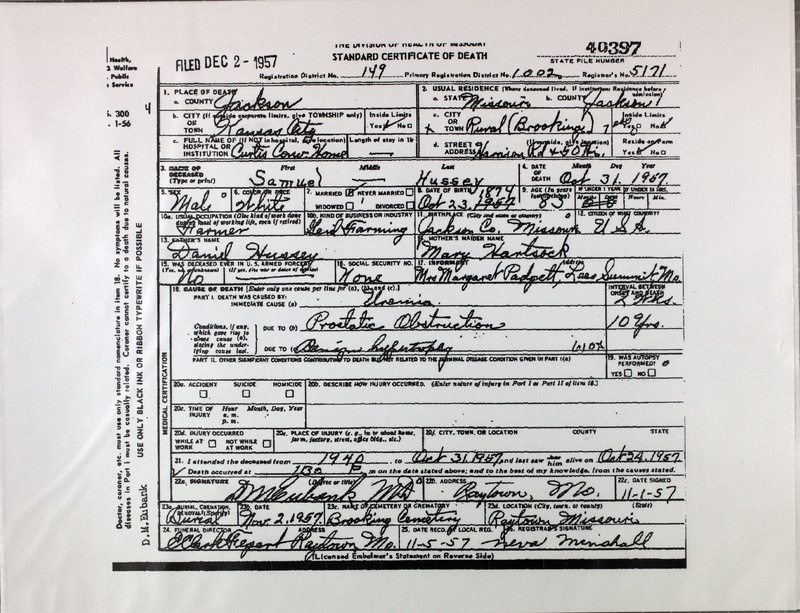 THE DIVISION OF HEALTH OF MISSOURI
FILED DEC 2 - 1957
STANDARD CERTIFICATE OF DEATH
40397
STATE FILE NUMBER
Registration District No. 149 Primary Registration District No. 1002 Registrar's No. 5171
Health,
& Welfare
Public
Service
S. 300
1-56
4
1. PLACE OF DEATH
a. COUNTY Jackson
2. USUAL RESIDENCE (Where deceased lived. If institution: Residence before admission)
a. STATE Missouri b. COUNTY Jackson
b. CITY (If outside corporate limits, give TOWNSHIP only) OR TOWN Kansas City
Inside Limits Yes No
c. CITY OR TOWN Rural (Brooking)
Inside Limits Yes No
c. FULL NAME OF (If NOT in hospital, give location) HOSPITAL OR INSTITUTION Curtis Conv. Home
Length of stay in 1b
d. STREET ADDRESS Harrison Rd & 50th
(If outside, give location)
Reside on Farm Yes No
3. NAME OF DECEASED (Type or print)
First Middle Last
Samuel Hussey
4. DATE OF DEATH Month Day Year
Oct 31, 1957
5. SEX Male
6. COLOR OR RACE White
7. MARRIED NEVER MARRIED WIDOWED DIVORCED
8. DATE OF BIRTH 1874
Oct 23, 1957
9. AGE (In years last birthday) 83
IF UNDER 1 YEAR Months Days
IF UNDER 24 HRS. Hours Min.
10a. USUAL OCCUPATION (Give kind of work done during most of working life, even if retired) Farmer
10b. KIND OF BUSINESS OR INDUSTRY Farming
11. BIRTHPLACE (City and state or country) Jackson Co, Missouri
12. CITIZEN OF WHAT COUNTRY? U.S.A.
13. FATHER'S NAME Daniel Hussey
14. MOTHER'S MAIDEN NAME Mary Hartsock
15. WAS DECEASED EVER IN U.S. ARMED FORCES? (Yes, no, or unknown) (If yes, give war or dates of service) No
16. SOCIAL SECURITY NO. None
17. INFORMANT Address
Mrs Margaret Padgett, Lees Summit Mo.
18. CAUSE OF DEATH [Enter only one cause per line for (a), (b) and (c).]
PART I. DEATH WAS CAUSED BY:
IMMEDIATE CAUSE (a) Uremia
INTERVAL BETWEEN ONSET AND DEATH
2 Wks.
Conditions, if any, which gave rise to above cause (a), stating the underlying cause last.
DUE TO (b) Prostatic Obstruction 10 Yrs.
DUE TO (c) Benign hypertrophy 610X
PART II. OTHER SIGNIFICANT CONDITIONS CONTRIBUTING TO DEATH BUT NOT RELATED TO THE TERMINAL DISEASE CONDITION GIVEN IN PART I(a)
19. WAS AUTOPSY PERFORMED? YES NO
20a. ACCIDENT SUICIDE HOMICIDE
20b. DESCRIBE HOW INJURY OCCURRED. (Enter nature of injury in Part I or Part II of item 18.)
20c. TIME OF INJURY Hour a.m. p.m. Month, Day, Year
20d. INJURY OCCURRED WHILE AT WORK NOT WHILE AT WORK
20e. PLACE OF INJURY (e.g., in or about home, farm, factory, street, office bldg., etc.)
20f. CITY, TOWN, OR LOCATION COUNTY STATE
21. I attended the deceased from 1940 to Oct 31, 1957 and last saw him alive on Oct 24, 1957
Death occurred at 1:30 P. m on the date stated above; and to the best of my knowledge, from the causes stated.
22a. SIGNATURE (Degree or title) D M Eubank MD
22b. ADDRESS Raytown, Mo.
22c. DATE SIGNED 11-1-57
23a. BURIAL, CREMATION, REMOVAL (Specify) Burial
23b. DATE Nov 2, 1957
23c. NAME OF CEMETERY OR CREMATORY Brooking Cemetery
23d. LOCATION (City, town, or county) (State) Raytown Missouri
24. FUNERAL DIRECTOR ADDRESS Raytown Mo.
25. DATE RECD. BY LOCAL REG. 11-5-57
26. REGISTRAR'S SIGNATURE Neva Minshall
(Licensed Embalmer's Statement on Reverse Side)
MEDICAL CERTIFICATION
USE ONLY BLACK INK OR RIBBON TYPEWRITE IF POSSIBLE
Doctor, coroner, etc. must use only standard nomenclature in item 18. No symptoms will be listed. All
diseases in Part I must be casually related. Coroner cannot certify to a death due to natural causes.
D.M. Eubank